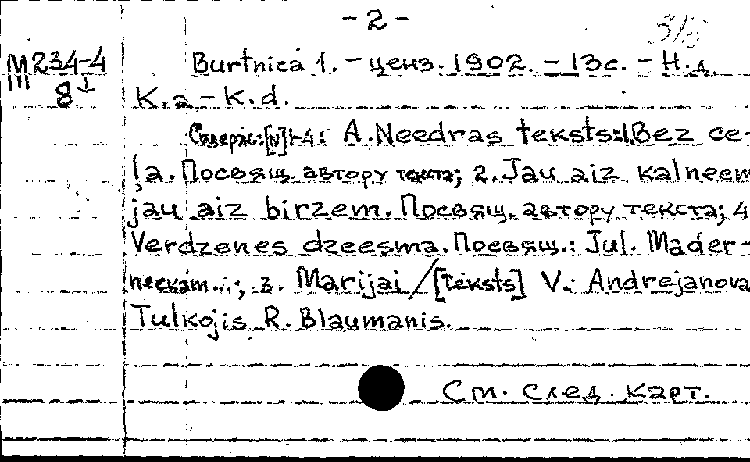 - 2 -
М 234-4
8
Burtnica 1. - ценз. 1902. - 13с. - Н.д.
K.a - K.d.
Содерж.: [N] 1-4: A. Needras teksts: 1. Bez ce-
ļa. Посвящ. автору текста; 2. Jau aiz kalneem
jau aiz birzem. Посвящ. автору текста; 4
Verdzenes dzeesma. Посвящ.: Jul. Mader-
neekam...; 3. Marijai / [teksts] V. Andrejanova
Tulkojis R. Blaumanis.
См. след. карт.